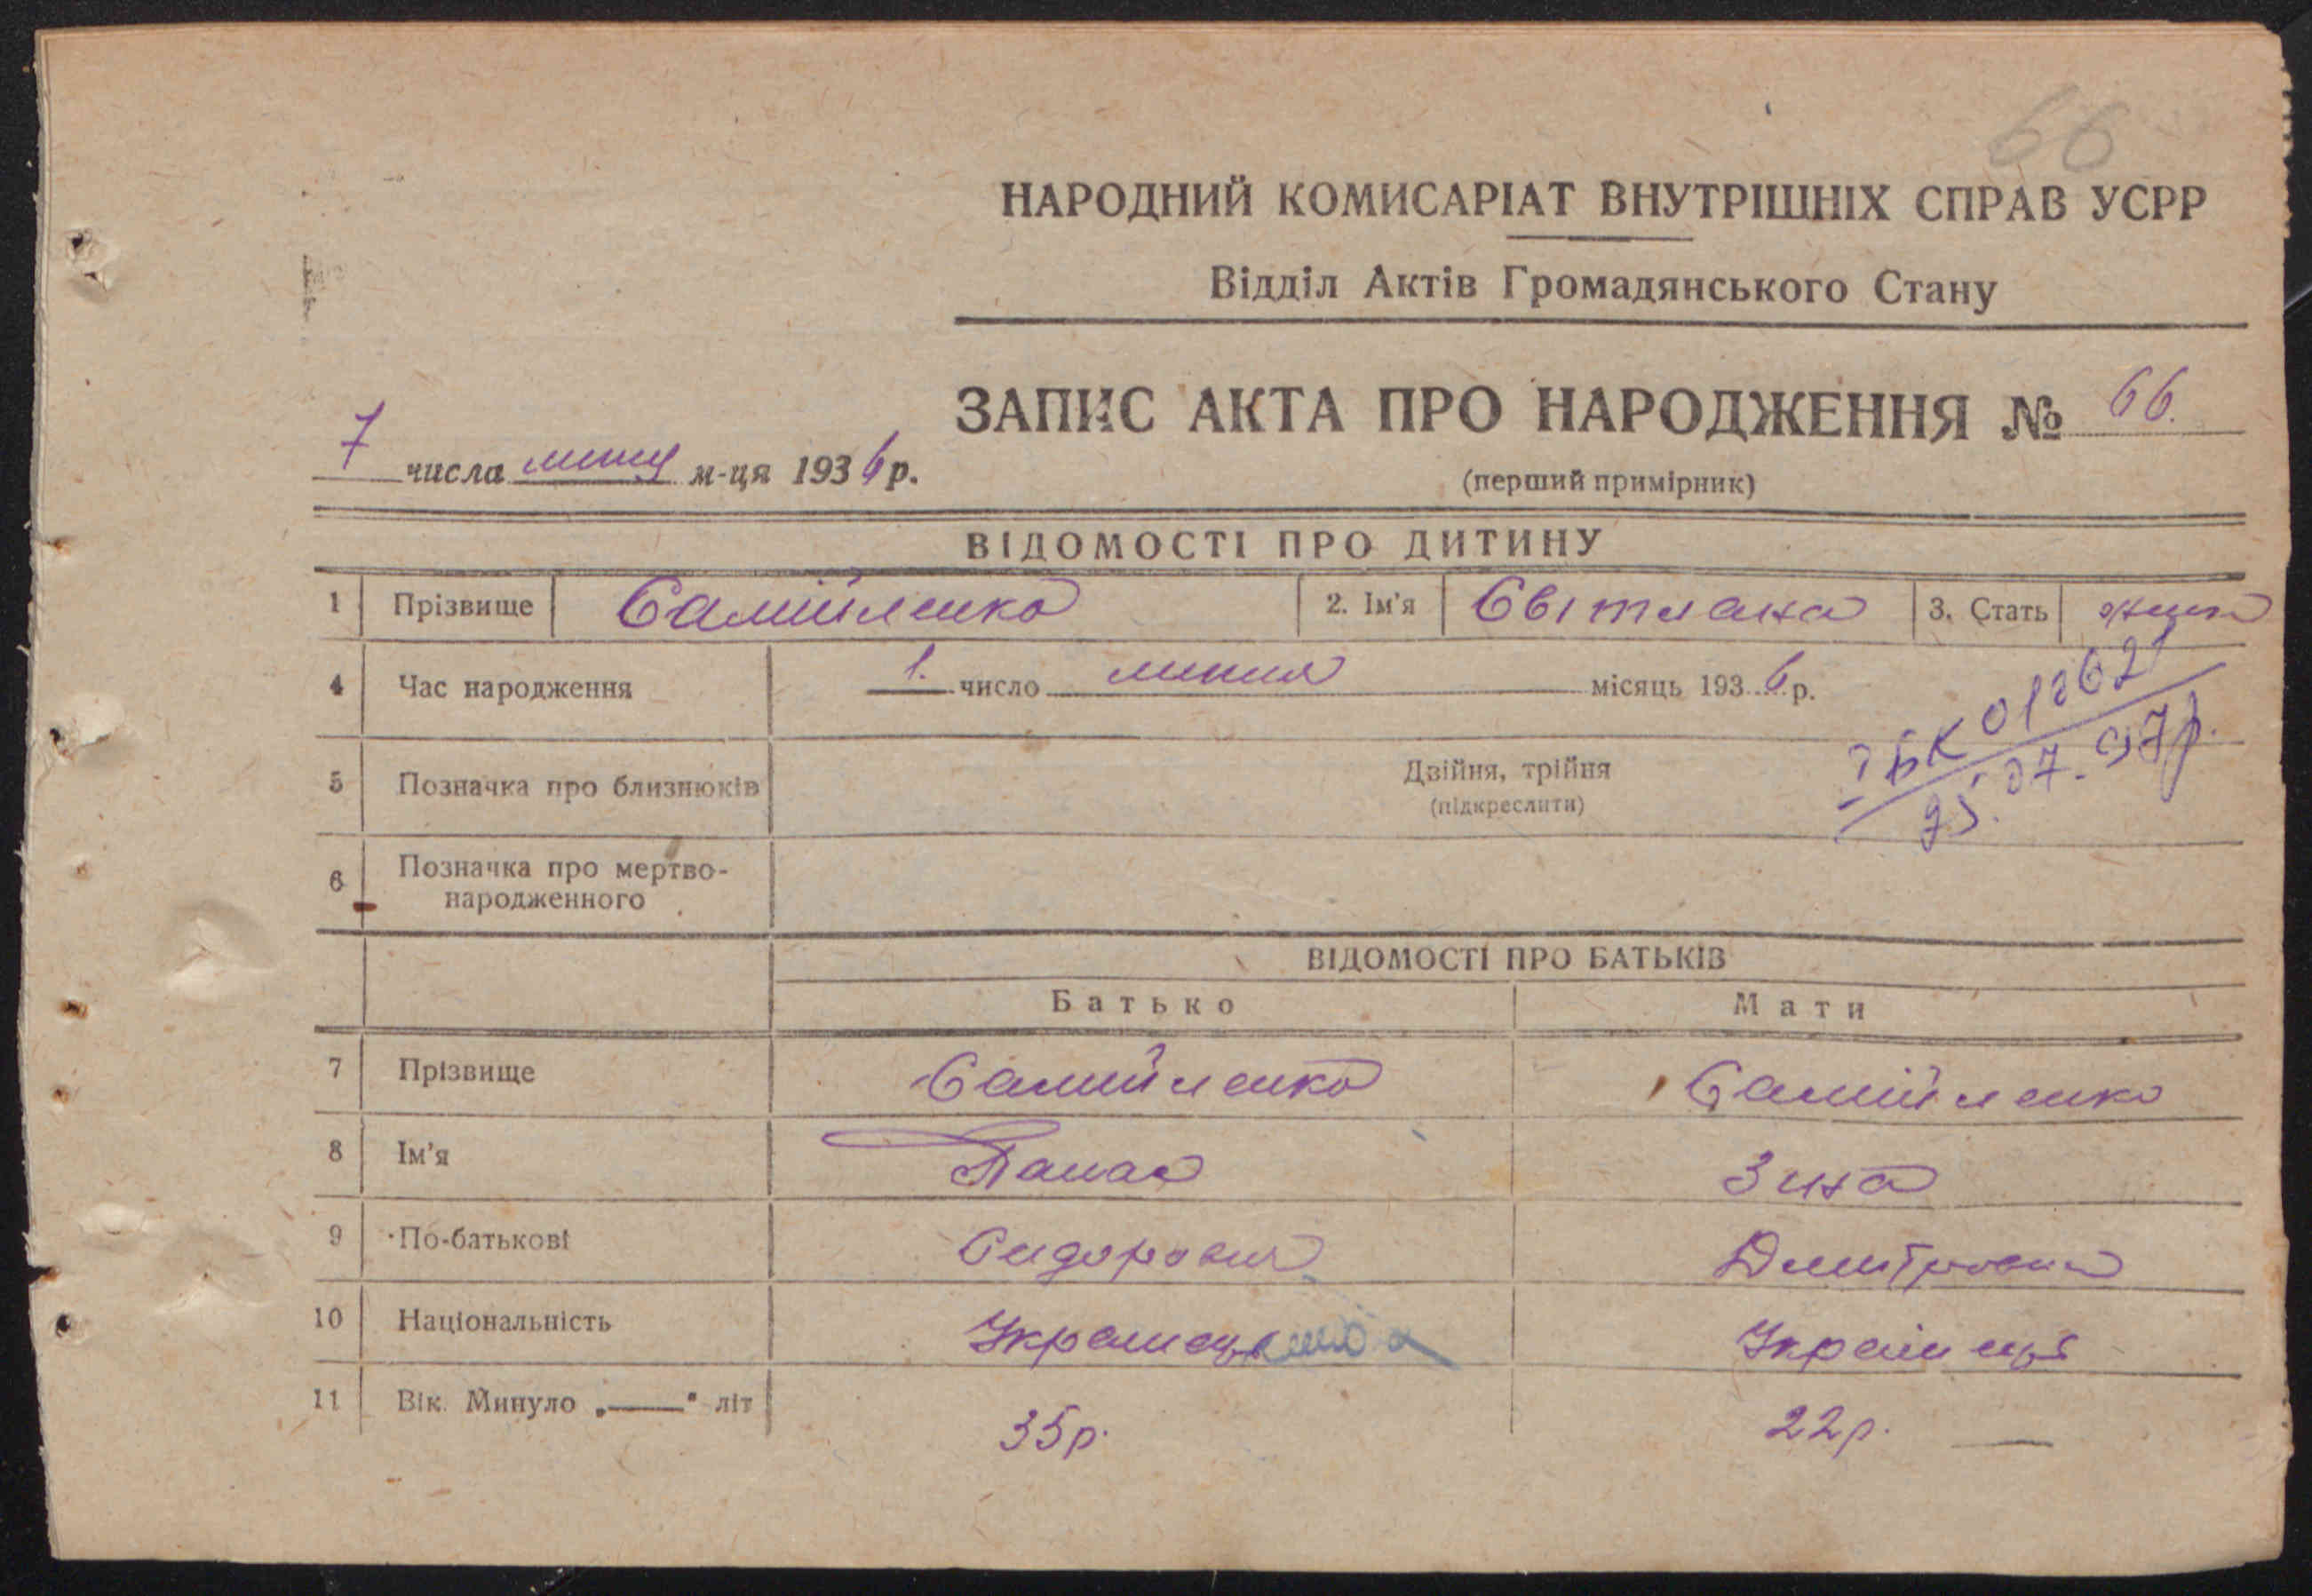 66
НАРОДНИЙ КОМИСАРІАТ ВНУТРІШНІХ СПРАВ УСРР
Відділ Актів Громадянського Стану
ЗАПИС АКТА ПРО НАРОДЖЕННЯ № 66.
7 числа липня м-ця 1936 р.
(перший примірник)
ВІДОМОСТІ ПРО ДИТИНУ
1 Прізвище Самійленко 2. Ім'я Світлана 3. Стать жіноч
4 Час народження 1. число липня місяць 1936 р.
5 Позначка про близнюків Двійня, трійня
(підкреслити)
ІБК
25.07.97р.
6 Позначка про мертво-
народженного
ВІДОМОСТІ ПРО БАТЬКІВ
Батько Мати
7 Прізвище Самійленко Самійленко
8 Ім'я Панас Зина
9 По-батькові Сидорович Дмитровна
10 Національність Українець Українця
11 Вік. Минуло „——" літ 35р. 22р. —